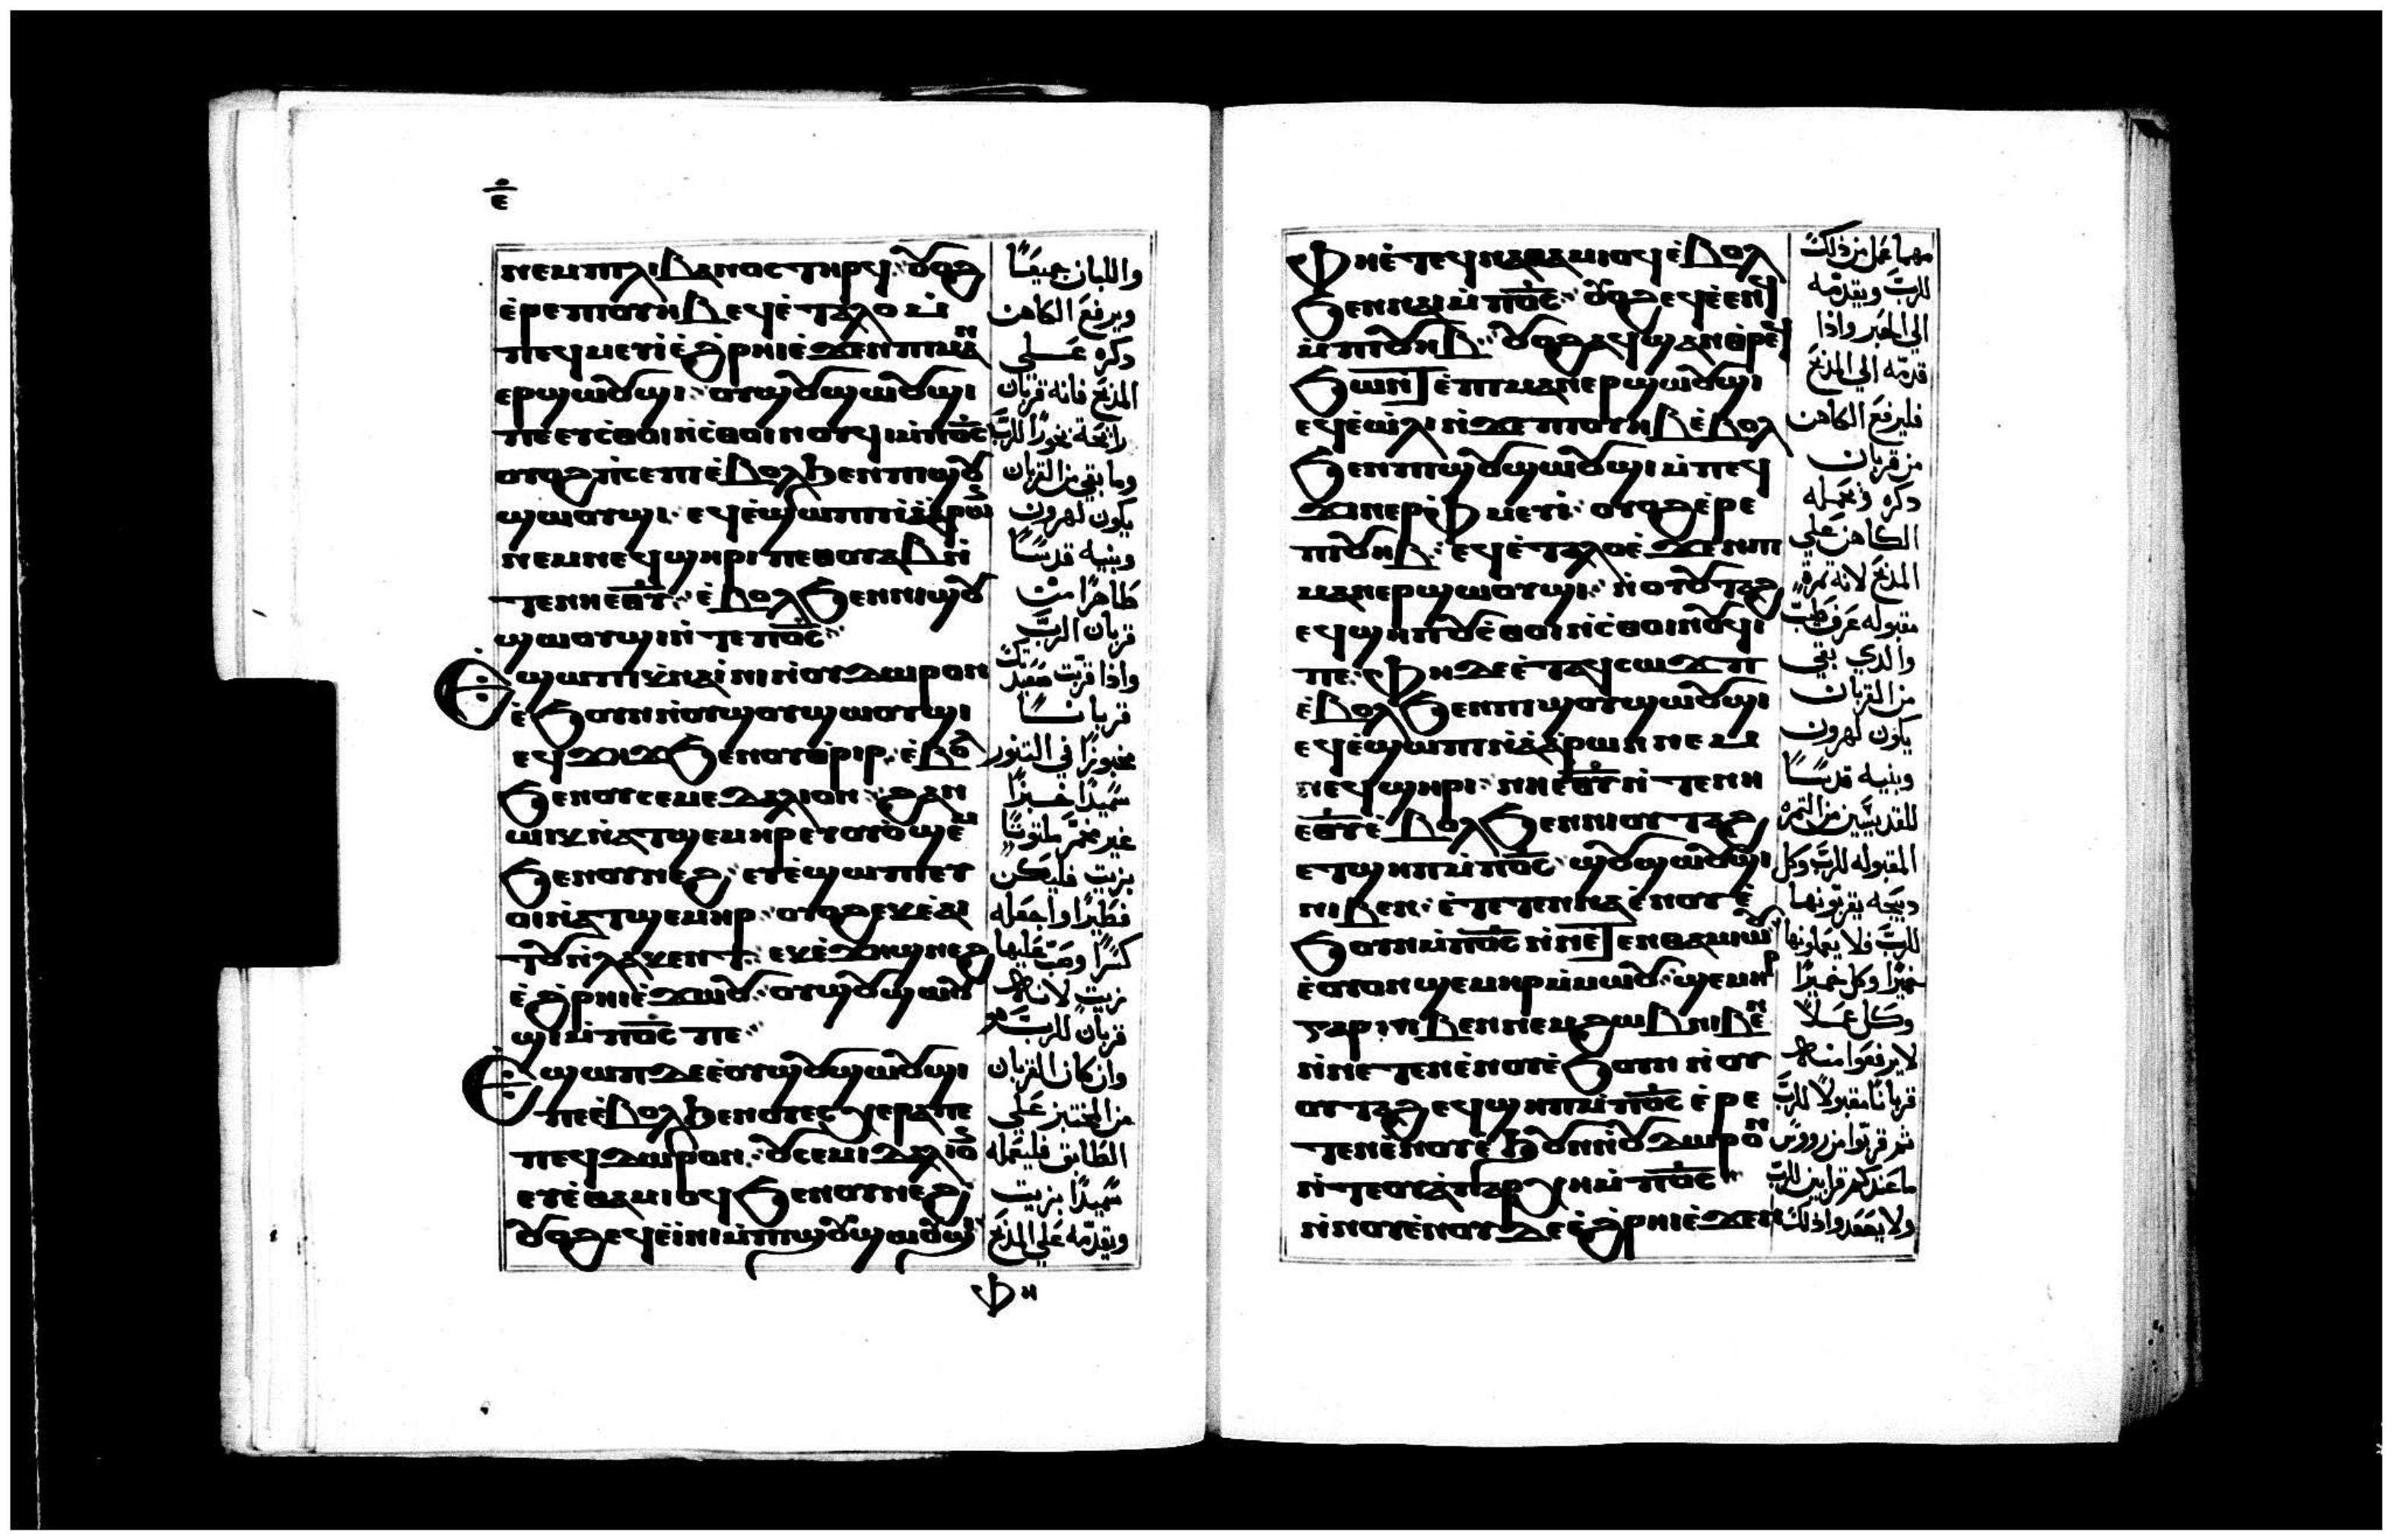 ⲉ̄
ⲛⲉⲙⲡⲓⲗⲓⲃⲁⲛⲟⲥ ⲧⲏⲣϥ· ⲟⲩⲟϩ
ⲉ̀ⲣⲉⲡⲓⲟⲩⲏⲃ ⲉϥⲉ̀ⲧⲁⲗⲟ ⲙ̀
ⲡⲉϥⲙⲉⲩⲓ̀ ⲉ̀ϩ̀ⲣⲏⲓ ⲉ̀ϫⲉⲛⲡⲓⲙⲁⲛ
ⲉⲣϣⲱⲟⲩϣⲓ· ⲟⲩϣⲟⲩϣⲱⲟⲩϣⲓ
ⲡⲉ ⲉⲩⲥ̀ⲑⲟⲓ ⲛ̀ⲥ̀ⲑⲟⲓⲛⲟⲩϥⲓ ⲙ̀ⲡⲟ̅ⲥ̅
ⲟⲩⲟϩ ⲡ̀ⲥⲉⲡⲓ ⲉ̀ⲃⲟⲗϧⲉⲛⲡⲓϣⲟⲩ
ϣⲱⲟⲩϣⲓ· ⲉϥⲉ̀ϣⲱⲡⲓ ⲛ̀ⲁ̀ⲁ̀ⲣⲱⲛ
ⲛⲉⲙⲛⲉϥϣⲏⲣⲓ ⲡⲉⲑⲟⲩⲁⲃ ⲛ̀
ⲧⲉⲛⲏⲉ̅ⲑ̅ⲩ̅· ⲉ̀ⲃⲟⲗϧⲉⲛⲛⲓϣⲟⲩ
ϣⲱⲟⲩϣⲓ ⲛ̀ⲧⲉⲡⲟ̅ⲥ̅
Ⲉ̀ϣⲱⲡ ⲭⲛⲁⲓ̀ⲛⲓ ⲛ̀ⲟⲩⲇⲱⲣⲟⲛ
ⲉ̀ϧⲟⲩⲛ ⲛ̀ⲟⲩϣⲟⲩϣⲱⲟⲩϣⲓ
ⲉϥϫⲓϫ ϧⲉⲛⲟⲩⲑⲣⲓⲣ· ⲉ̀ⲃⲟⲗ
ϧⲉⲛⲟⲩⲥⲉⲙⲉⲇⲁⲗⲓⲟⲛ· ϩⲁⲛ
ⲱⲓⲕ ⲛ̀ⲁⲧϣⲉⲙⲏⲣ ⲉⲩⲟⲩⲟϣⲉⲙ
ϧⲉⲛⲟⲩⲛⲉϩ· ⲉⲩⲉ̀ϣⲱⲡⲓ ⲉⲩ
ⲟⲓ ⲛ̀ⲁⲧϣⲉⲙⲏⲣ· ⲟⲩⲟϩ ⲉⲕⲉ̀ⲁⲓ
ⲧⲟⲩ ⲛ̀ⲗⲁⲕⲉⲛⲧ· ⲉⲕⲉ̀ϫⲱϣ ⲛⲉϩ
ⲉ̀ϩ̀ⲣⲏⲓ ⲉ̀ϫⲱⲟⲩ· ⲟⲩϣⲟⲩϣⲱⲟⲩ
ϣⲓ ⲙ̀ⲡⲟ̅ⲥ̅ ⲡⲉ
Ⲉ̀ϣⲱⲡ ⲇⲉ ⲉⲟⲩϣⲟⲩϣⲱⲟⲩϣⲓ
ⲡⲉ ⲉ̀ⲃⲟⲗϧⲉⲛⲟⲩⲉⲥⲭⲉⲣⲁ ⲡⲉ
ⲡⲉϥⲇⲱⲣⲟⲛ· ⲟⲩⲥⲉⲙⲓⲇⲁⲗⲓⲟⲛ
ⲉⲩⲉ̀ⲑⲁⲙⲓⲟϥ ϧⲉⲛⲟⲩⲛⲉϩ
ⲟⲩⲟϩ ⲉϥⲉ̀ⲓ̀ⲛⲓ ⲙ̀ⲡⲓϣⲟⲩϣⲱⲟⲩϣⲓ
ⲫⲏ
واللبان جميعًا
ويرفع الكاهن
ذكره علي
المذبح فانه قربان
رائحة بخورًا للرب
وما بقي من القربان
يكون لهرون
وبنيه قدسًا
طاهرًا من
قربان الرب
واذا قربت صعيدتك
قربانًا
مخبوزًا في التنور
سميدًا خبزًا
غير مخمر ملتوتًا
بزيت فليكن
فطيرًا واجعله
كسرًا وصب عليها
زيت لانها
قربان للرب
وان كان القربان
من المختبز علي
الطابق فليعمله
سميدًا بزيت
ويقدمه علي المذبح
ⲫⲏ ⲉ̀ⲧⲉϥⲛⲁⲑⲁⲙⲓⲟϥ ⲉ̀ⲃⲟⲗ
ϧⲉⲛⲛⲁⲓ ⲙ̀ⲡⲟ̅ⲥ̅· ⲟⲩⲟϩ ⲉϥⲉ̀ⲉⲛϥ
ⲙ̀ⲡⲓⲟⲩⲏⲃ· ⲟⲩⲟϩ ⲁϥϣⲁⲛⲑⲣⲉϥ
ϧⲱⲛⲧ ⲉ̀ⲡⲓⲙⲁⲛⲉⲣϣⲱⲟⲩϣⲓ
ⲉϥⲉ̀ⲱ̀ⲗⲓ ⲛ̀ϫⲉⲡⲓⲟⲩⲏⲃ ⲉ̀ⲃⲟⲗ
ϧⲉⲛⲡⲓϣⲟⲩϣⲱⲟⲩϣⲓ ⲙ̀ⲡⲉϥ
ϫⲓⲛⲉⲣⲫⲙⲉⲩⲓ̀· ⲟⲩⲟϩ ⲉ̀ⲣⲉ
ⲡⲓⲟⲩⲏⲃ· ⲉϥⲉ̀ⲧⲁⲗⲟ ⲉ̀ϫⲉⲛⲡⲓ
ⲙⲁⲛⲉⲣϣⲱⲟⲩϣⲓ· ⲛ̀ⲟⲩⲟⲩⲧⲁϩ
ⲉϥϣⲏⲡ ⲟⲩⲥ̀ⲑⲟⲓ ⲛ̀ⲥ̀ⲑⲟⲓⲛⲟⲩϥⲓ
ⲡⲉ· ⲫⲏ ⲇⲉ ⲉ̀ⲧⲁϥⲥⲱϫⲡ
ⲉ̀ⲃⲟⲗϧⲉⲛⲡⲓϣⲟⲩϣⲱⲟⲩϣⲓ
ⲉϥⲉ̀ϣⲱⲡⲓ ⲛ̀ⲁ̀ⲁ̀ⲣⲱⲛ ⲛⲉⲙ
ⲛⲉϥϣⲏⲣⲓ· ⲛⲏⲉ̅ⲑ̅ⲩ̅ ⲛ̀ⲧⲉⲛⲏ
ⲉ̅ⲑ̅ⲩ̅ ⲉ̀ⲃⲟⲗϧⲉⲛⲛⲓⲟⲩⲧⲁϩ
ⲉⲧϣⲏⲡ ⲙ̀ⲡⲟ̅ⲥ̅· ϣⲟⲩϣⲱⲟⲩϣⲓ
ⲛⲓⲃⲉⲛ· ⲉ̀ⲧⲉⲧⲉⲛⲛⲁⲉ̀ⲛⲟⲩ ⲉ̀
ϧⲟⲩⲛ ⲙ̀ⲡⲟ̅ⲥ̅ ⲛ̀ⲛⲉⲧⲉⲛⲑⲁⲙⲓⲱⲟⲩ
ⲉ̀ⲟⲩⲟⲛ ϣⲉⲙⲏⲣ ⲙ̀ⲙⲱⲟⲩ· ϣⲉⲙⲏⲣ
ⲅⲁⲣ ⲛⲓⲃⲉⲛ ⲛⲉⲙϩⲱⲃ ⲛⲓⲃⲉⲛ
ⲛ̀ⲛⲉⲧⲉⲛⲉ̀ⲛⲟⲩ ⲉ̀ϧⲟⲩⲛ ⲛ̀ⲟⲩ
ⲟⲩⲧⲁϩ ⲉϥϣⲏⲡ ⲙ̀ⲡⲟ̅ⲥ̅ ⲉ̀ⲣⲉ
ⲧⲉⲛⲉ̀ⲛⲟⲩ ⲉ̀ϧⲟⲩⲛ ⲛ̀ⲟⲩⲇⲱⲣⲟⲛ
ⲛ̀ⲧⲉⲟⲩⲁⲡⲁⲣⲭⲏ ⲙ̀ⲡⲟ̅ⲥ̅
ⲛ̀ⲛⲟⲩⲉ̀ⲛⲟⲩ ⲇⲉ ⲉ̀ϩ̀ⲣⲏⲓ ⲉ̀ϫⲉⲛ
مهما عمل من ذلك
للرب ويقدمه
الي الحبر واذا
قدمه الي المذبح
فليرفع الكاهن
من قربان
ذكره ويجعله
الكاهن علي
المذبح لانه ثمرة
مقبوله عرف طيب
والذي بقي
من القربان
يكون لهرون
وبنيه قدسًا
للقديسين من الثمره
المقبوله للرب وكل
ذبيحه يقربونها
للرب فلا يعملونها
خميرًا وكل خميرًا
وكل عسلاً
لا يرفعوا منها
قربانًا مقبولاً للرب
ثم قربوا من رووس
ما عندكم قرابين للرب
ولا يصعدوا ذلك